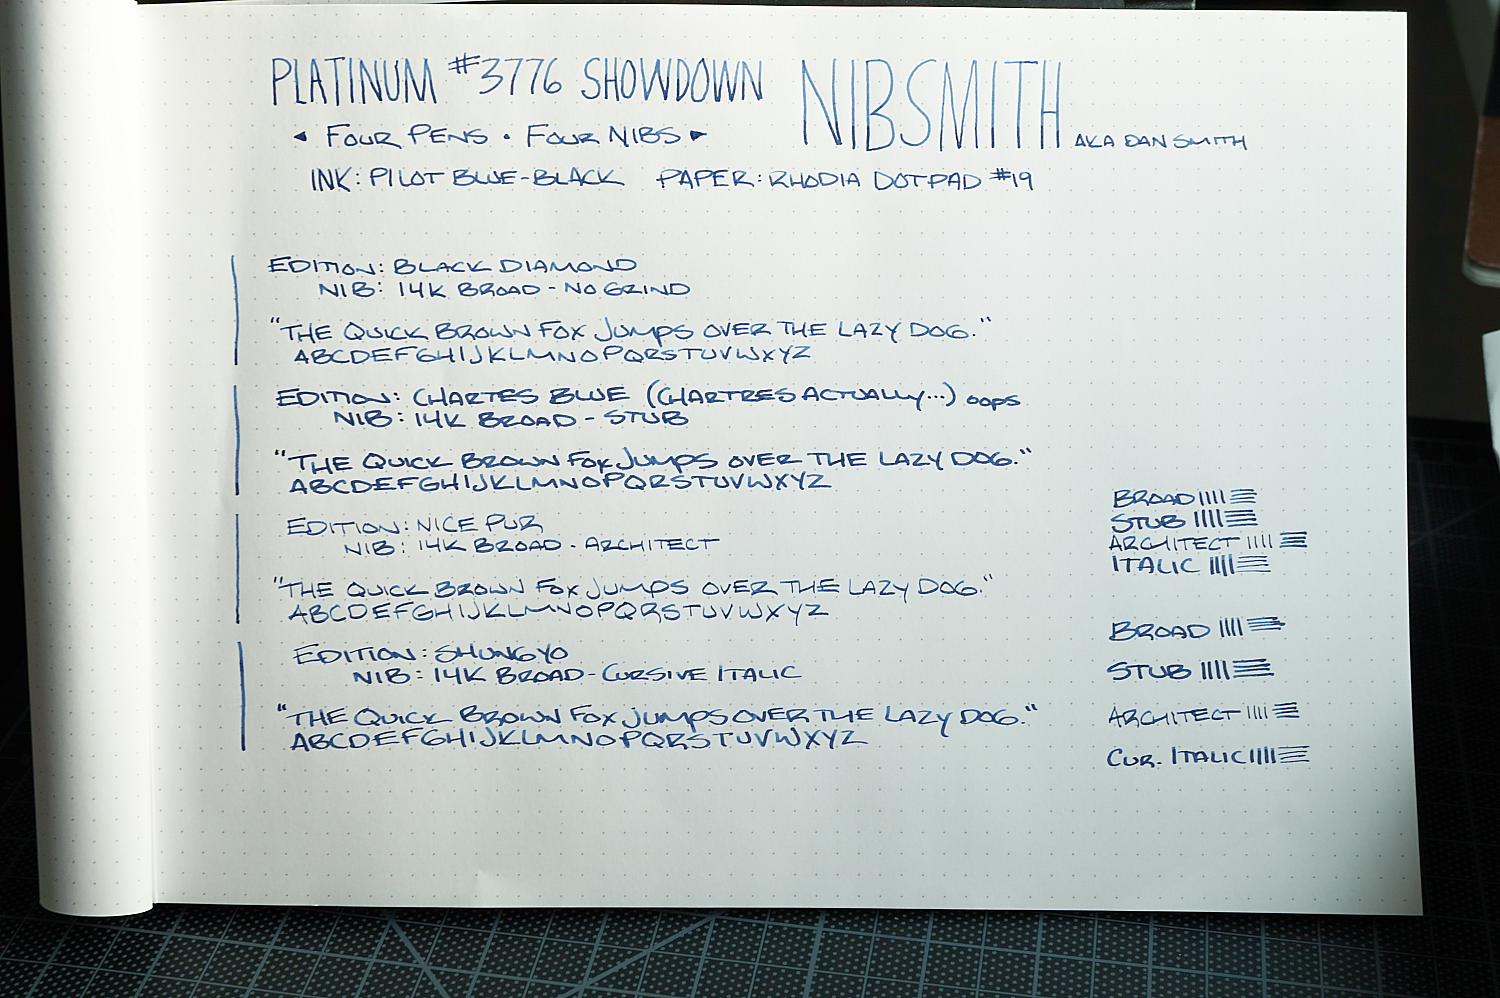 PLATINUM #3776 SHOWDOWN
NIBSMITH AKA DAN SMITH
FOUR PENS · FOUR NIBS
INK: PILOT BLUE-BLACK PAPER: RHODIA DOTPAD #19
EDITION: BLACK DIAMOND
NIB: 14K BROAD - NO GRIND
"THE QUICK BROWN FOX JUMPS OVER THE LAZY DOG."
ABCDEFGHIJKLMNOPQRSTUVWXYZ
EDITION: CHARTES BLUE (CHARTRES ACTUALLY...) oops
NIB: 14K BROAD - STUB
"THE QUICK BROWN FOX JUMPS OVER THE LAZY DOG."
ABCDEFGHIJKLMNOPQRSTUVWXYZ
EDITION: NICE PUR
NIB: 14K BROAD - ARCHITECT
"THE QUICK BROWN FOX JUMPS OVER THE LAZY DOG."
ABCDEFGHIJKLMNOPQRSTUVWXYZ
EDITION: SHUNGYO
NIB: 14K BROAD - CURSIVE ITALIC
"THE QUICK BROWN FOX JUMPS OVER THE LAZY DOG."
ABCDEFGHIJKLMNOPQRSTUVWXYZ
BROAD
STUB
ARCHITECT
ITALIC
BROAD
STUB
ARCHITECT
CUR. ITALIC